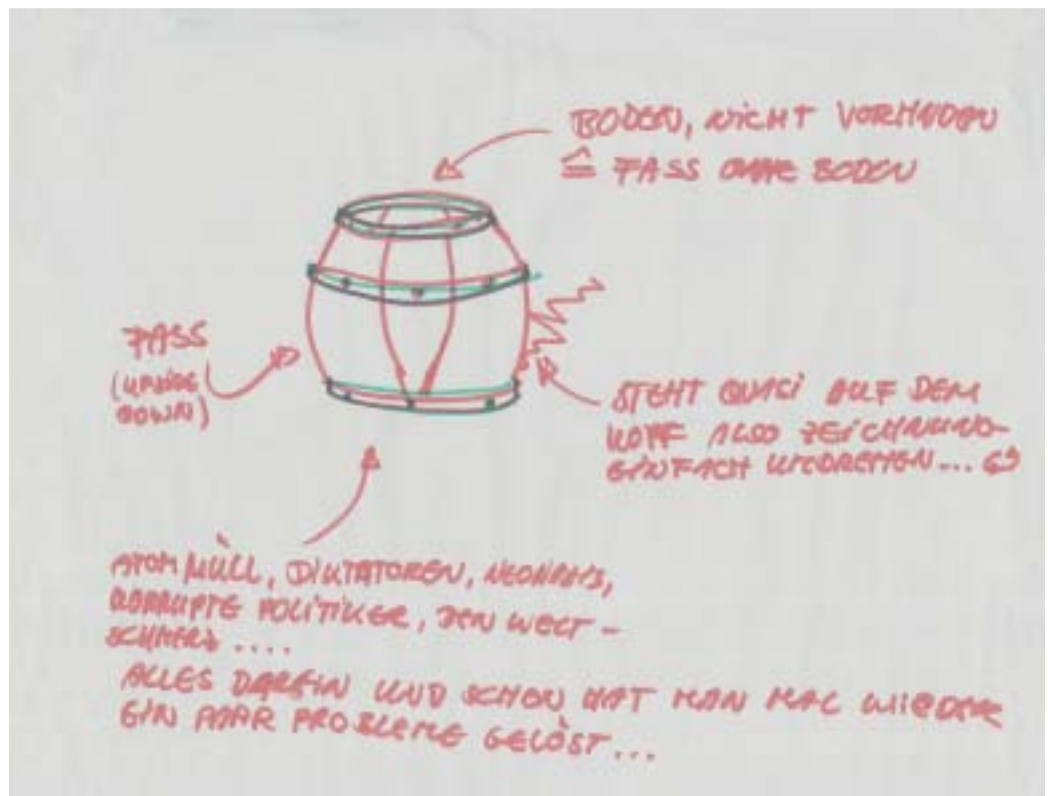 BODEN, NICHT VORHANDEN
≙ FASS OHNE BODEN
FASS
(UPSIDE
DOWN)
STEHT QUASI AUF DEM
KOPF ALSO ZEICHNUNG
EINFACH UMDREHEN...
ATOMMÜLL, DIKTATOREN, NEONAZIS,
KORRUPTE POLITIKER, DEN WELT-
SCHMERZ ....
ALLES DAREIN UND SCHON HAT MAN MAL WIEDER
EIN PAAR PROBLEME GELÖST...